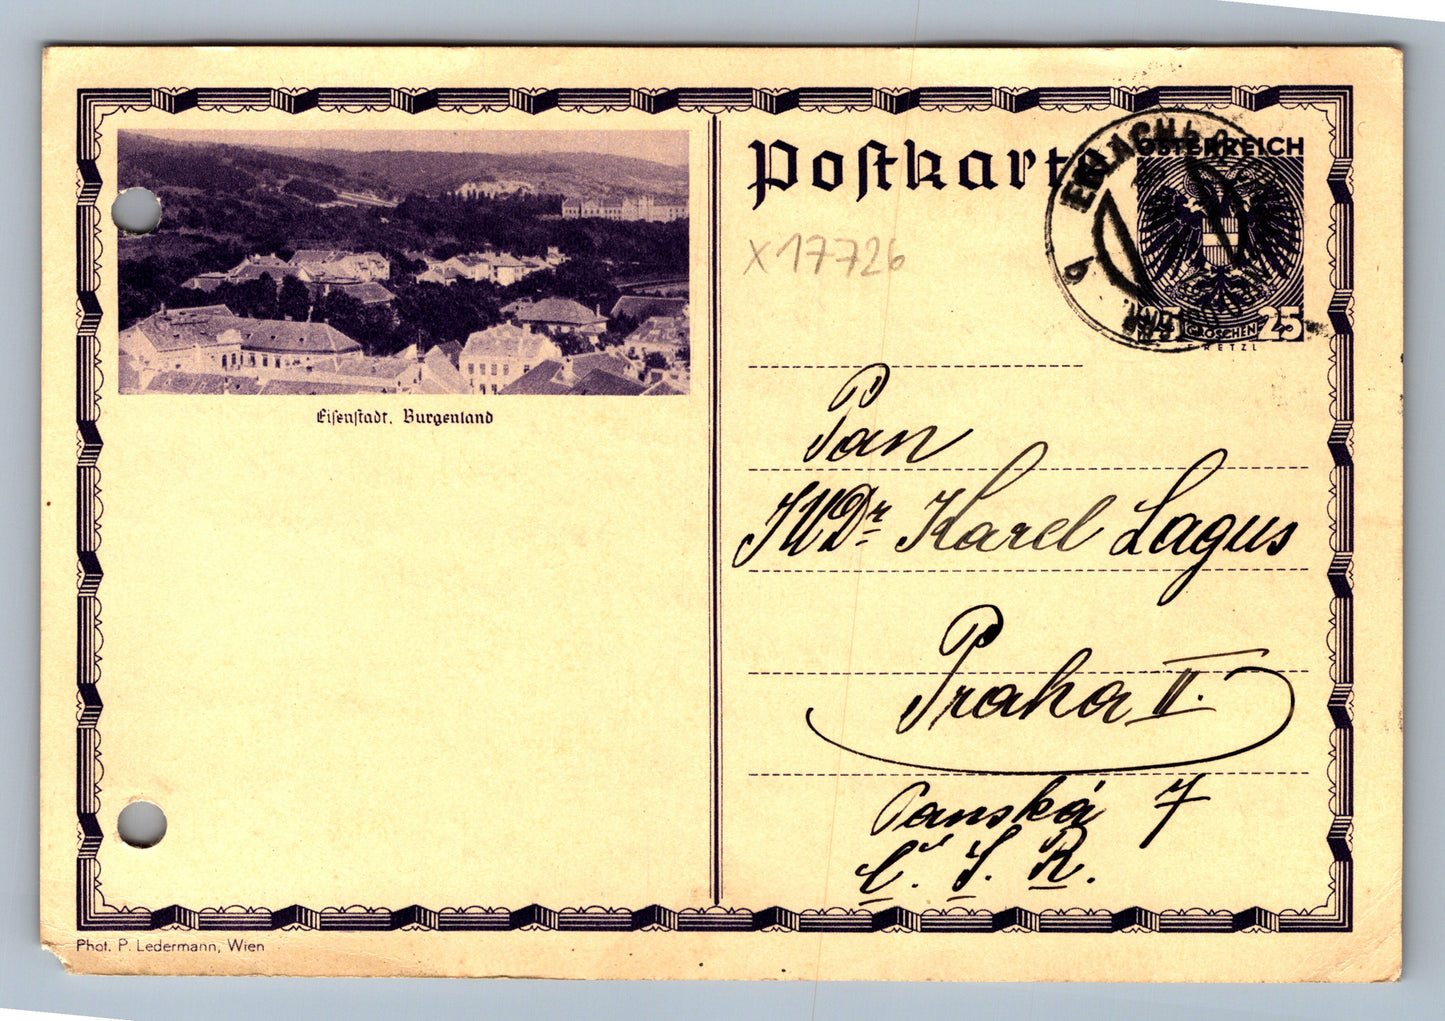 Postkarte
ÖSTERREICH
25
GROSCHEN
F RETZL
ERLACH
b
X 17726
Eisenstadt, Burgenland
Pan
JUDr Karel Lagus
Praha II.
Panská 7
Č. S. R.
Phot. P. Ledermann, Wien